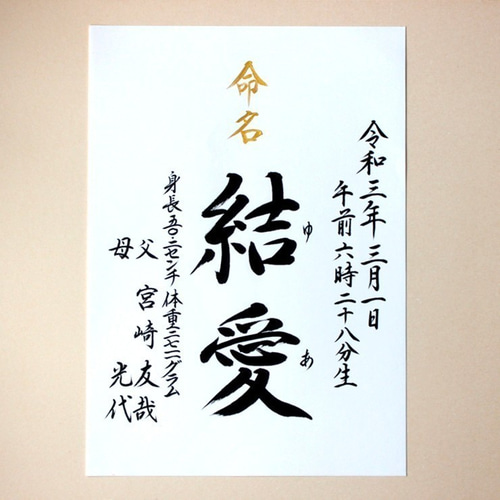 命名
令和三年三月一日
午前六時二十八分生
結愛
ゆ
あ
身長五〇・二センチ 体重三二七一グラム
父 宮崎 友哉
母 光代